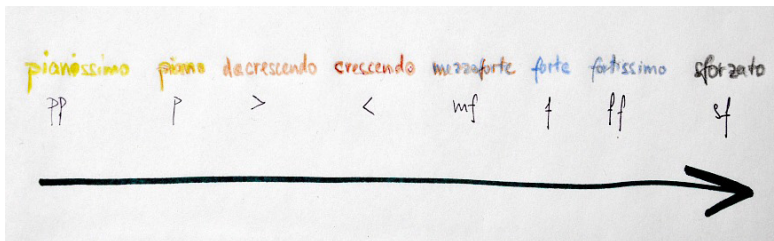 pianissimo piano decrescendo crescendo mezzoforte forte fortissimo sforzato
pp p > < mf f ff sf